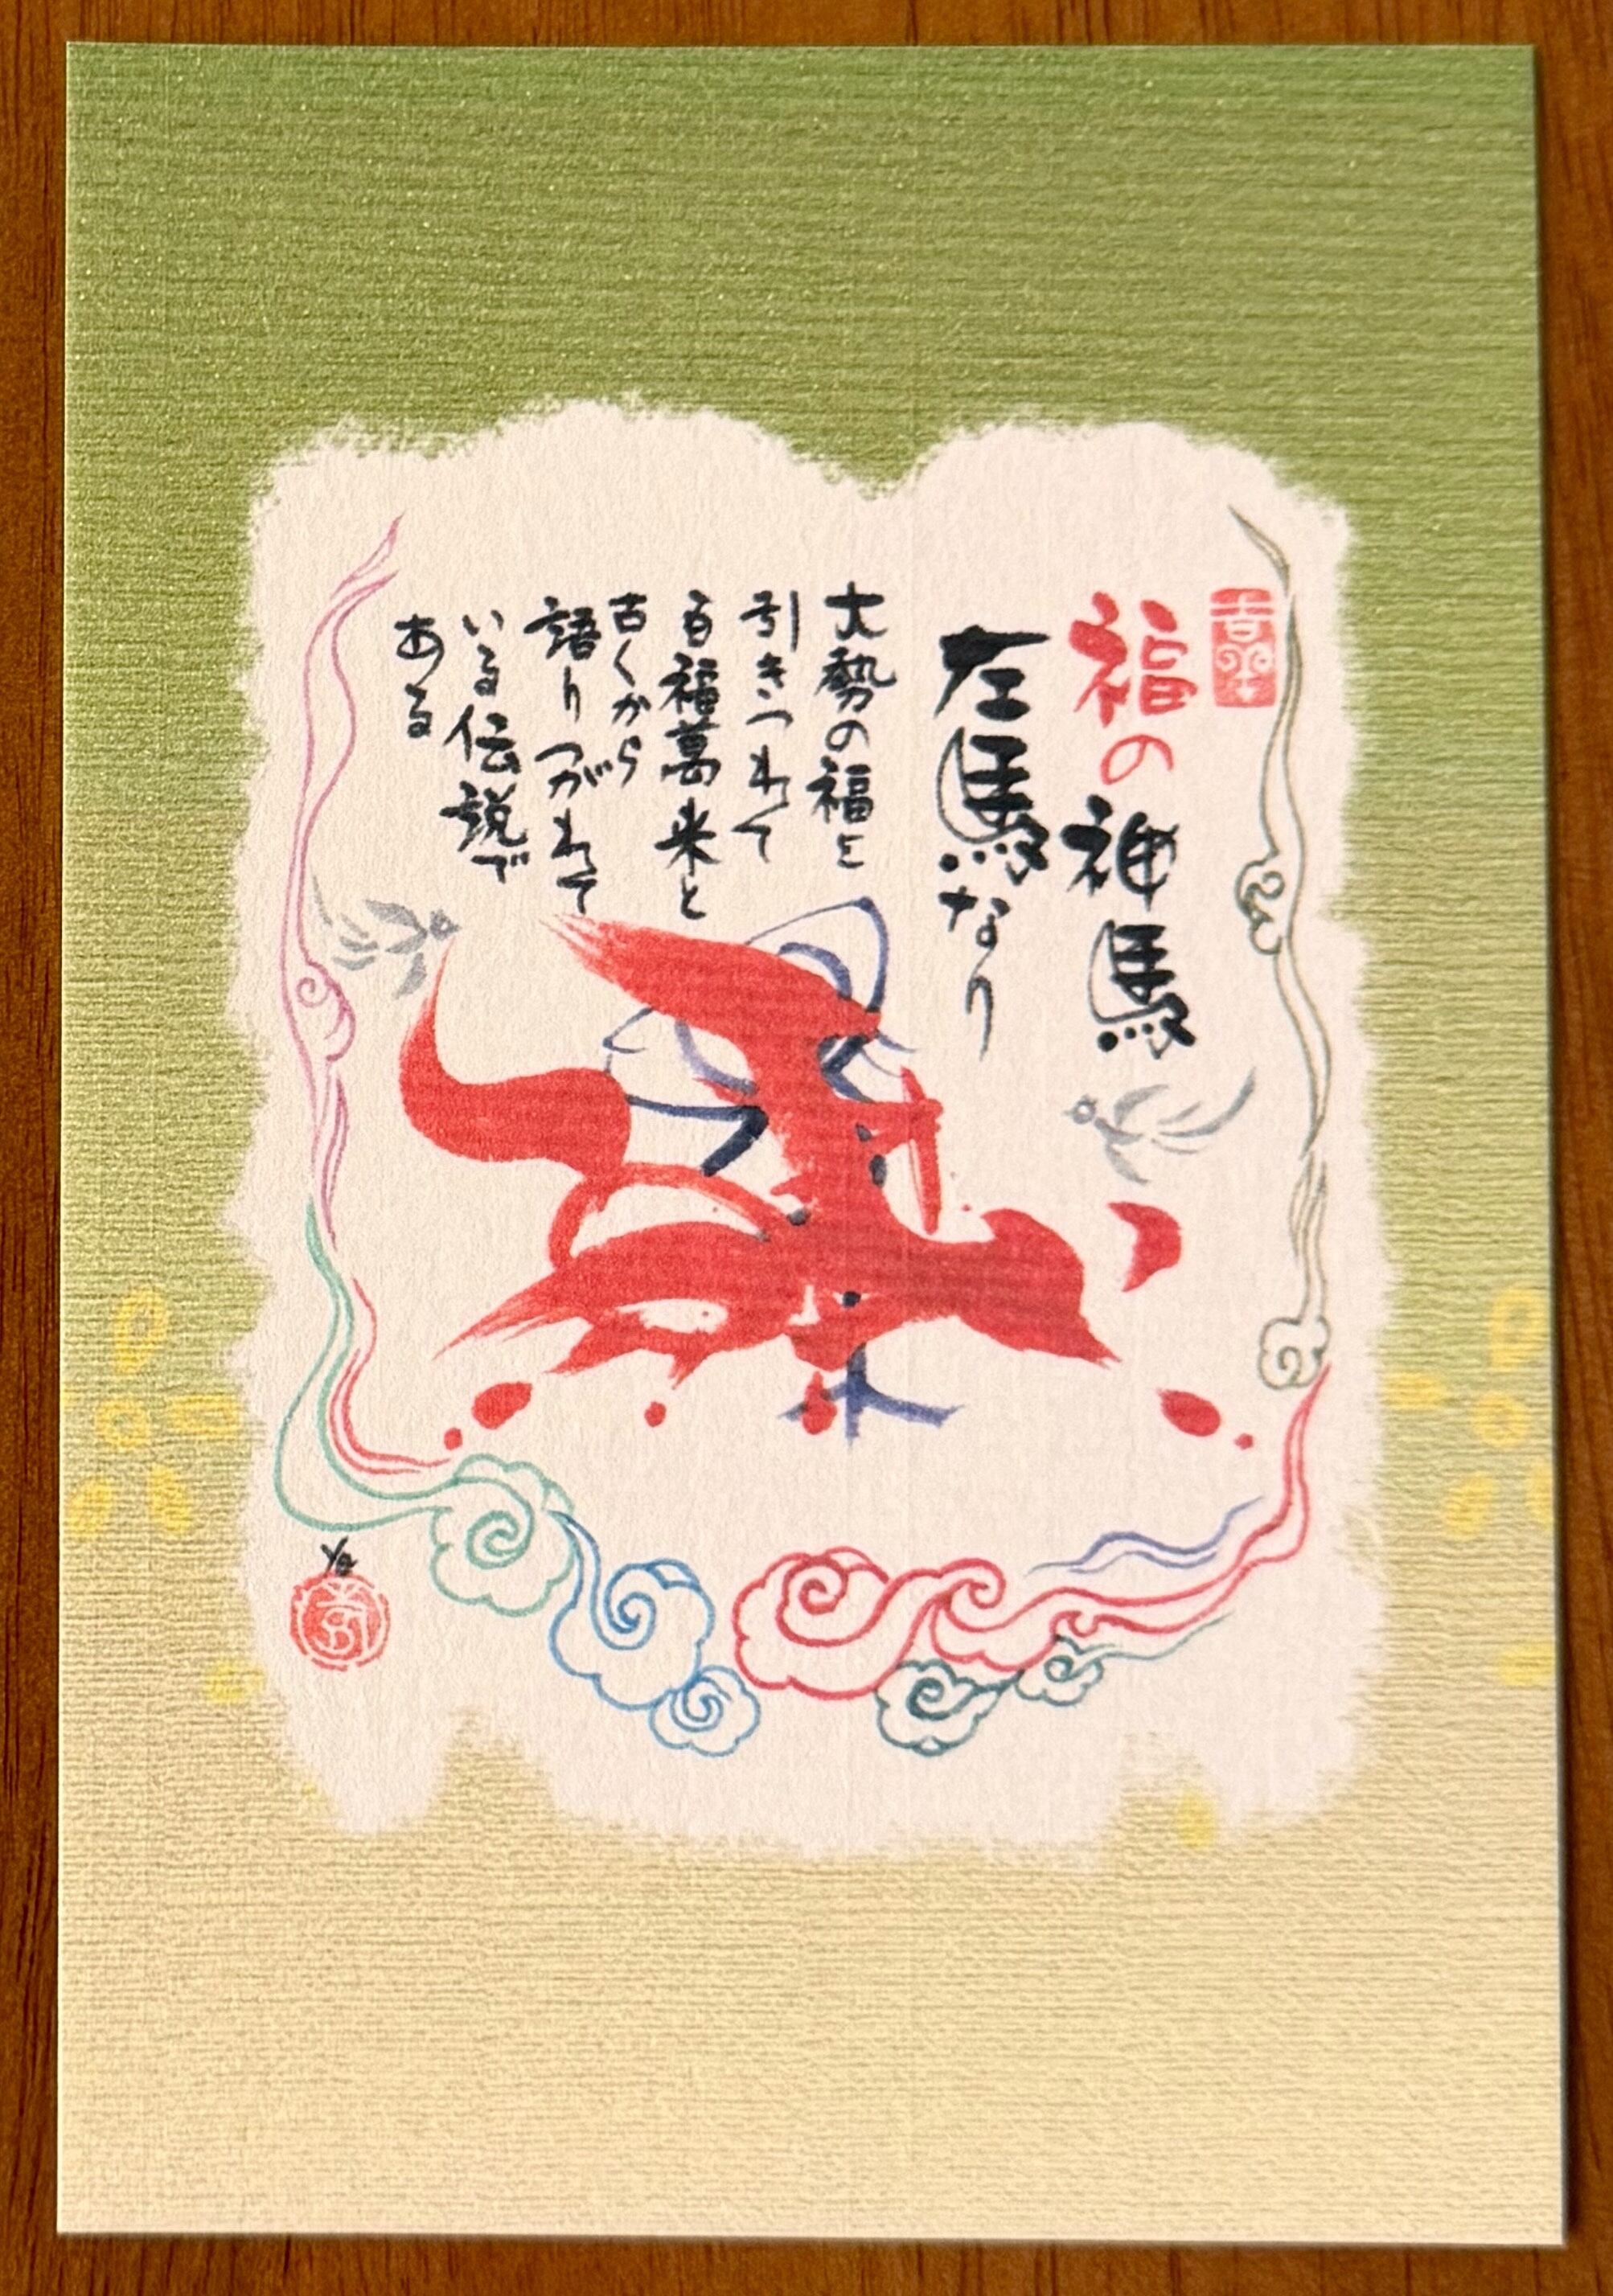 福の神馬
左馬なり
大勢の福を
引きつれて
百福萬来と
古くから
語りつがれて
いる伝説で
ある